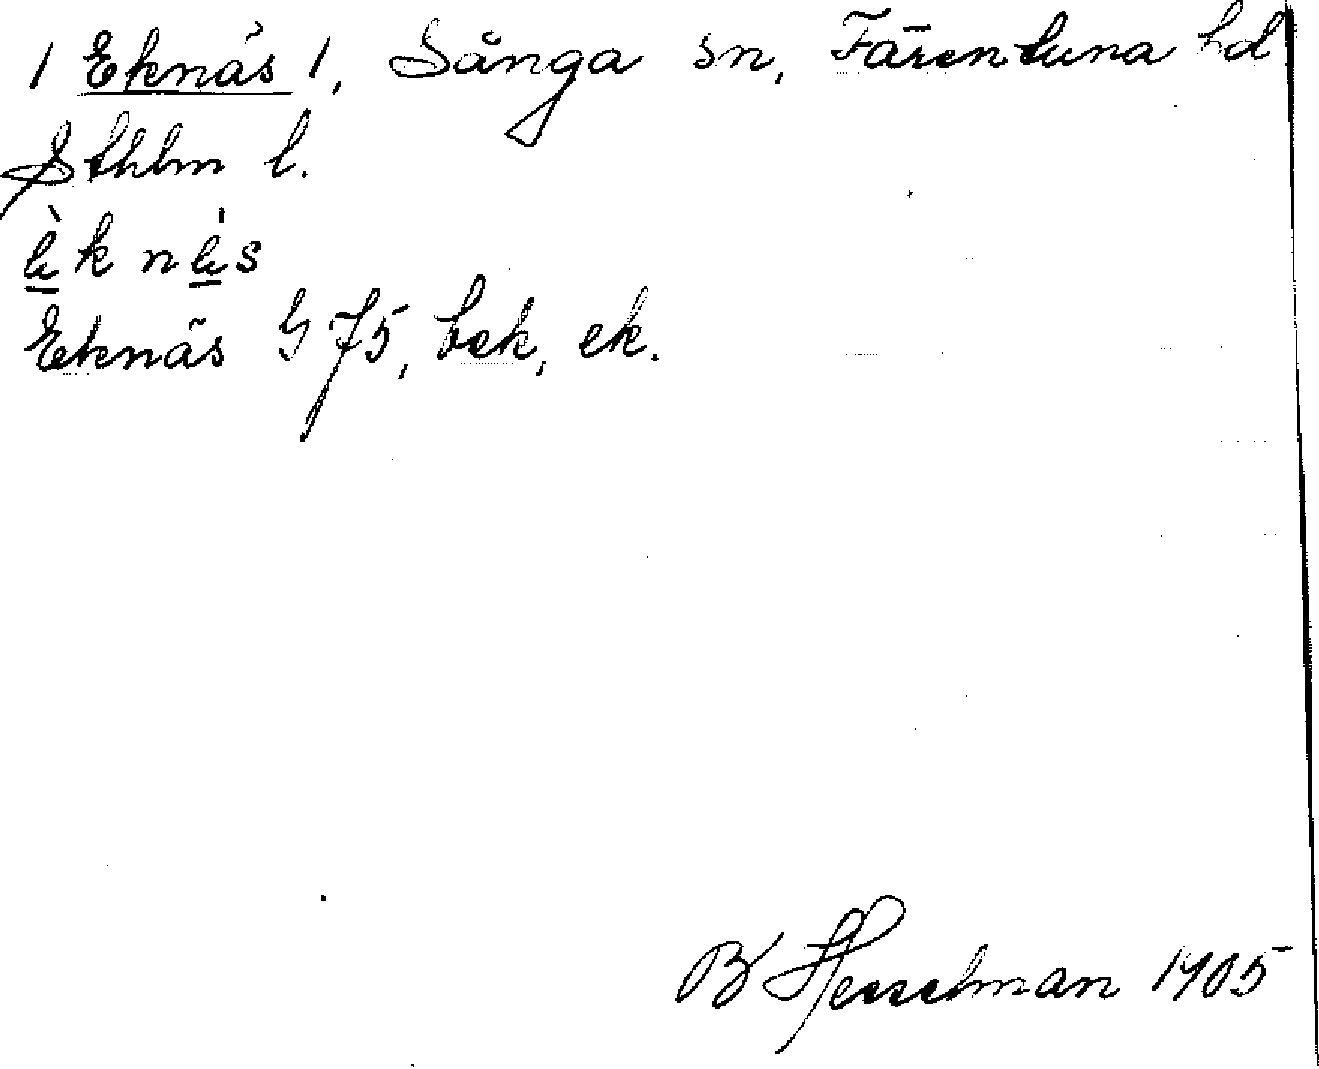 / Eknäs /, Sånga sn, Färentuna hd
Sthlm l.
Eknäs G 75, bek, ek.
B Hesselman 1905